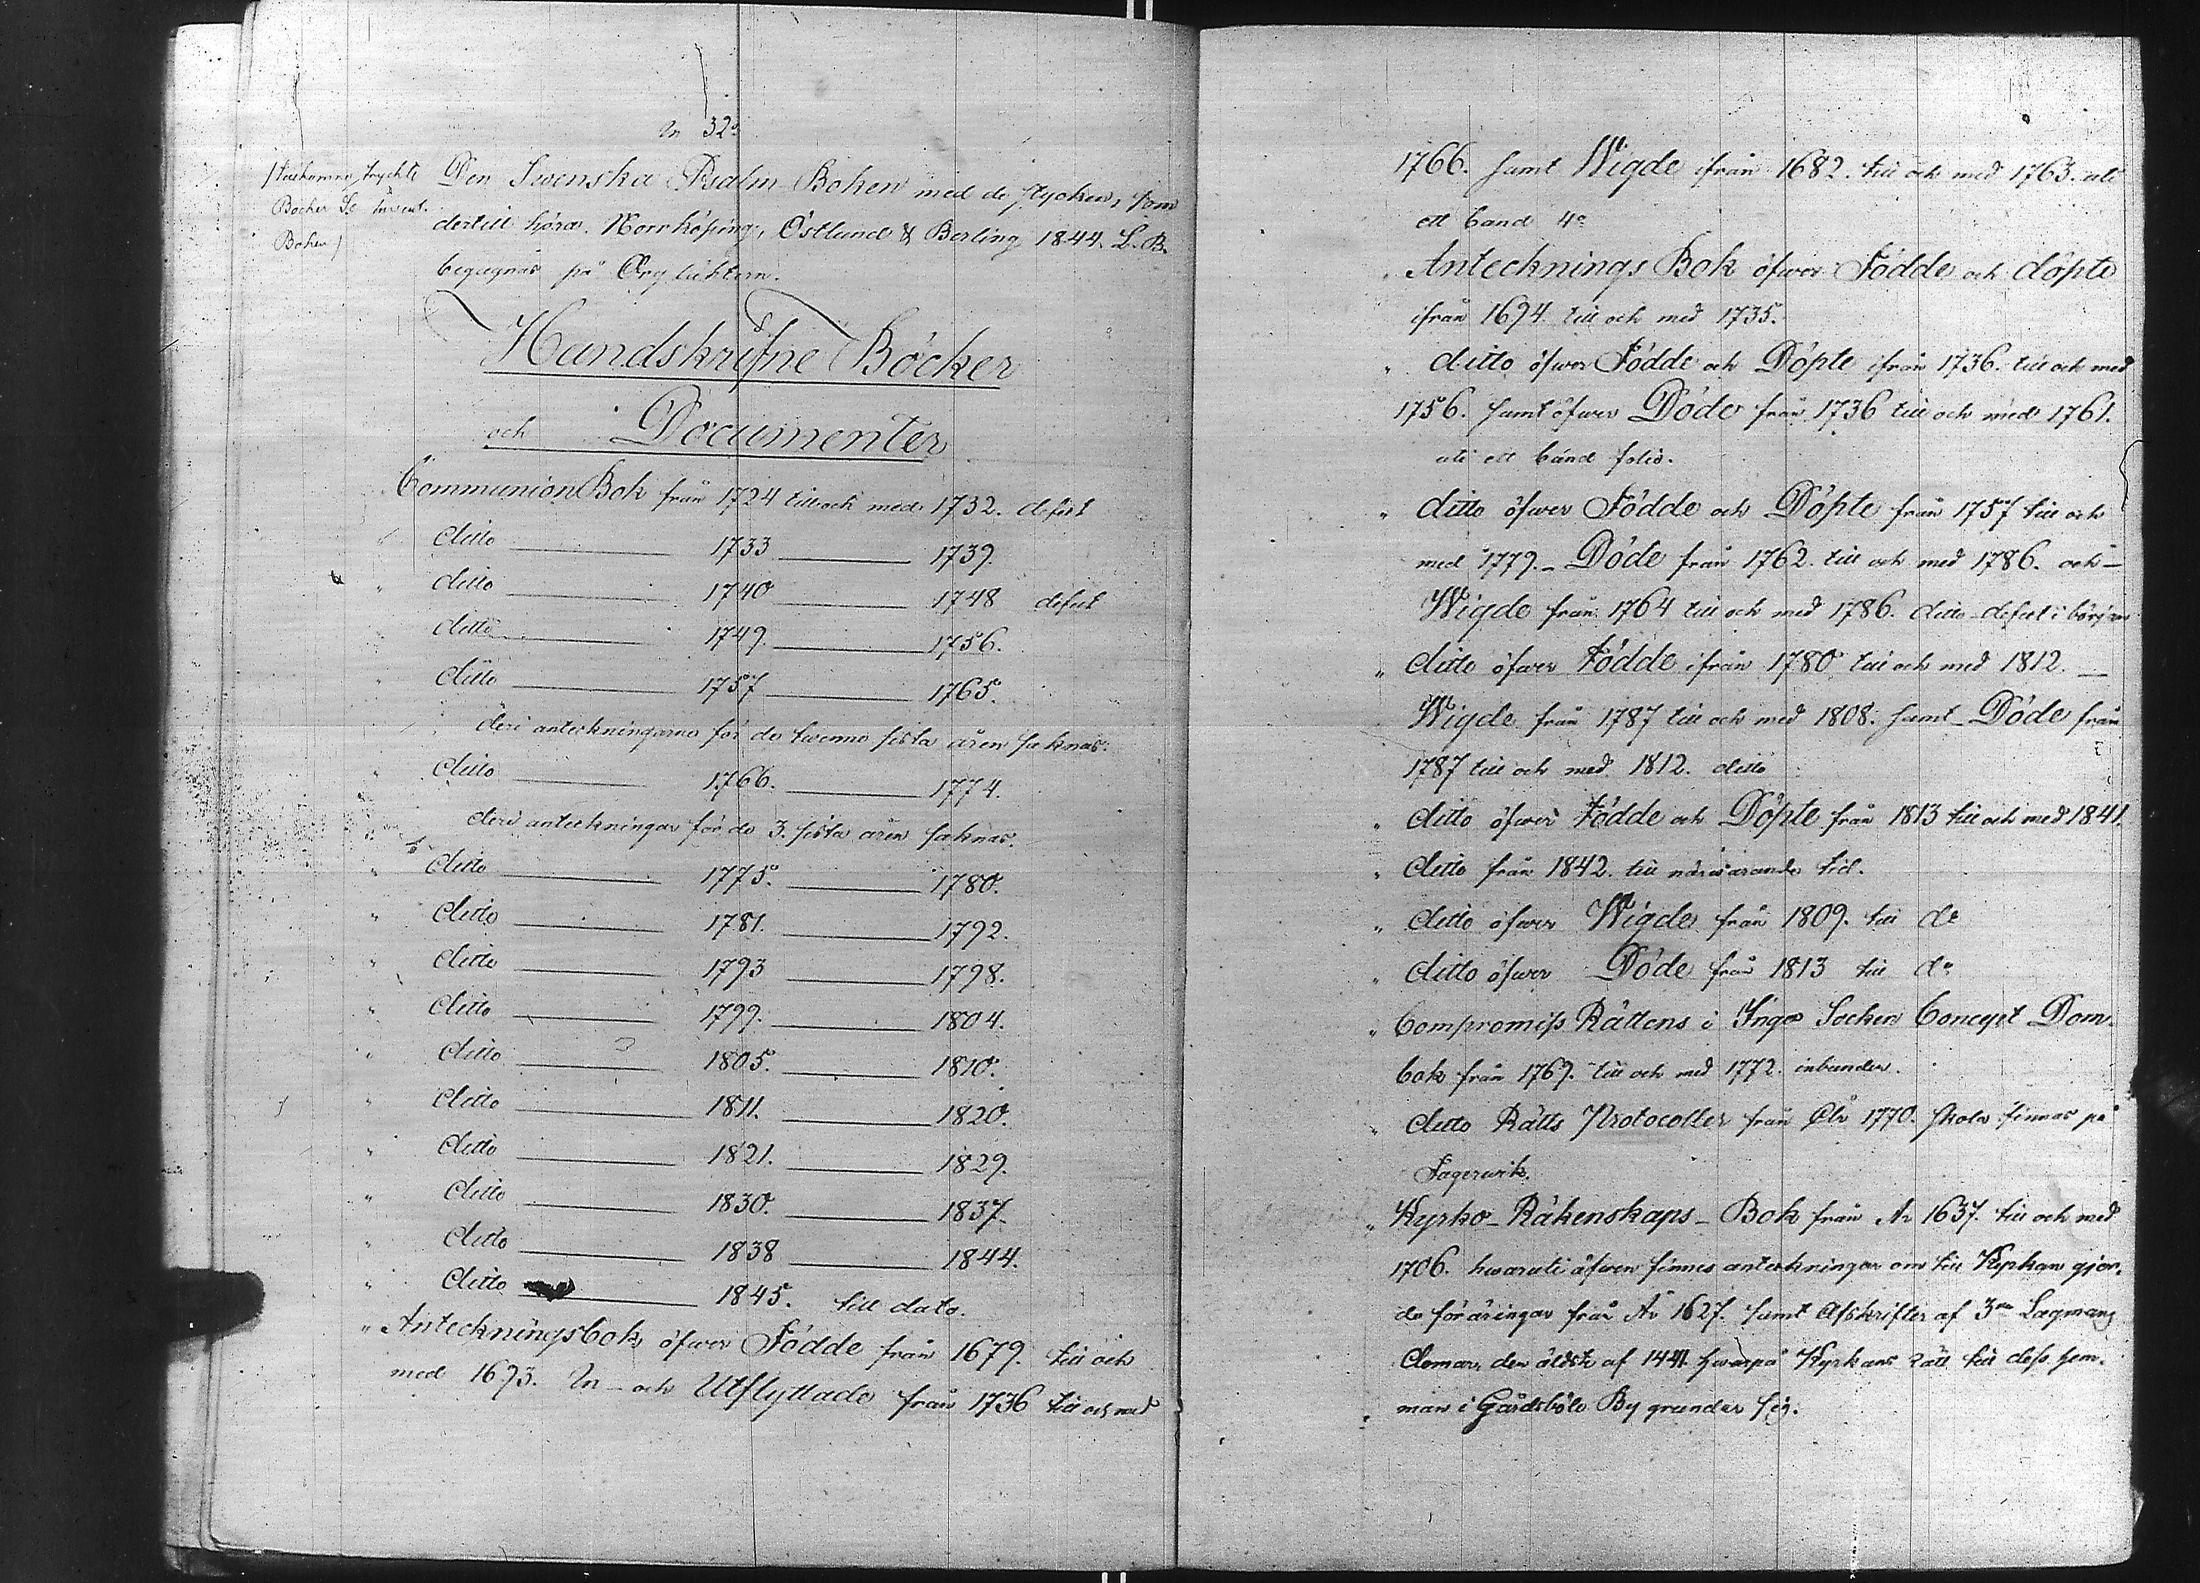 N 32.
tryckte
Böcker Se Invent.
Boken)
Den Swenska Psalm Boken med de stycken, som
dertill höra. Norrköping, Östlund & Berling 1844. L. B.
begagnas på Orgläktern.
Handskrifne Böcker
och Documenter
Communion Bok från 1724 till och med 1732. defect
" ditto 1733 1739.
" ditto 1740 1748 defect
" ditto 1749. 1756.
" ditto 1757 1765.
deri anteckningarne för de twenne sista åren saknas.
" ditto 1766. 1774.
deri anteckningar för de 3. sista åren saknas.
" ditto 1775. 1780.
" ditto 1781. 1792.
" ditto 1793 1798.
" ditto 1799. 1804.
" ditto 1805. 1810.
" ditto 1811. 1820.
" ditto 1821. 1829.
" ditto 1830. 1837.
" ditto 1838 1844.
" ditto 1845. till dato.
" Anteckningsbok öfwer Födde från 1679. till och
med 1693. In- och Utflyttade från 1736 till och med
1766. samt Wigde ifrån 1682. till och med 1763. uti
ett band 4o
" Antecknings Bok öfwer Födde och döpte
ifrån 1694. till och med 1735.
" ditto öfwer Födde och Döpte ifrån 1736. till och med
1756. samt öfwer Döde från 1736 till och med 1761.
uti ett band folio.
" ditto öfwer Födde och Döpte från 1757 till och
med 1779. - Döde från 1762. till och med 1786. och -
Wigde från 1764 till och med 1786. ditto - defect i början
" ditto öfwer Födde ifrån 1780 till och med 1812. -
Wigde från 1787 till och med 1808. samt Döde från
1787 till och med 1812. ditto
" ditto öfwer Födde och Döpte från 1813 till och med 1841.
" ditto från 1842. till närwarande tid.
" ditto öfwer Wigde från 1809. till do
" ditto öfwer Döde från 1813 till do
" Compromiss Rättens i Ingo Socken Concept Dom-
bok från 1769. till och med 1772. inbunden.
" ditto Rätts Protocoller från År 1770. skola finnas på
Fagerwik.
" Kyrko-Räkenskaps-Bok från År 1637. till och med
1706. hwaruti äfwen finnes anteckningar om till Kyrkan gjor-
da föräringar från År 1627. samt Afskrifter af 3ne Lagmans
Domar, den äldste af 1441. hwarpå Kyrkans rätt till dess hem-
man i Gårdsböle By grundar sig.